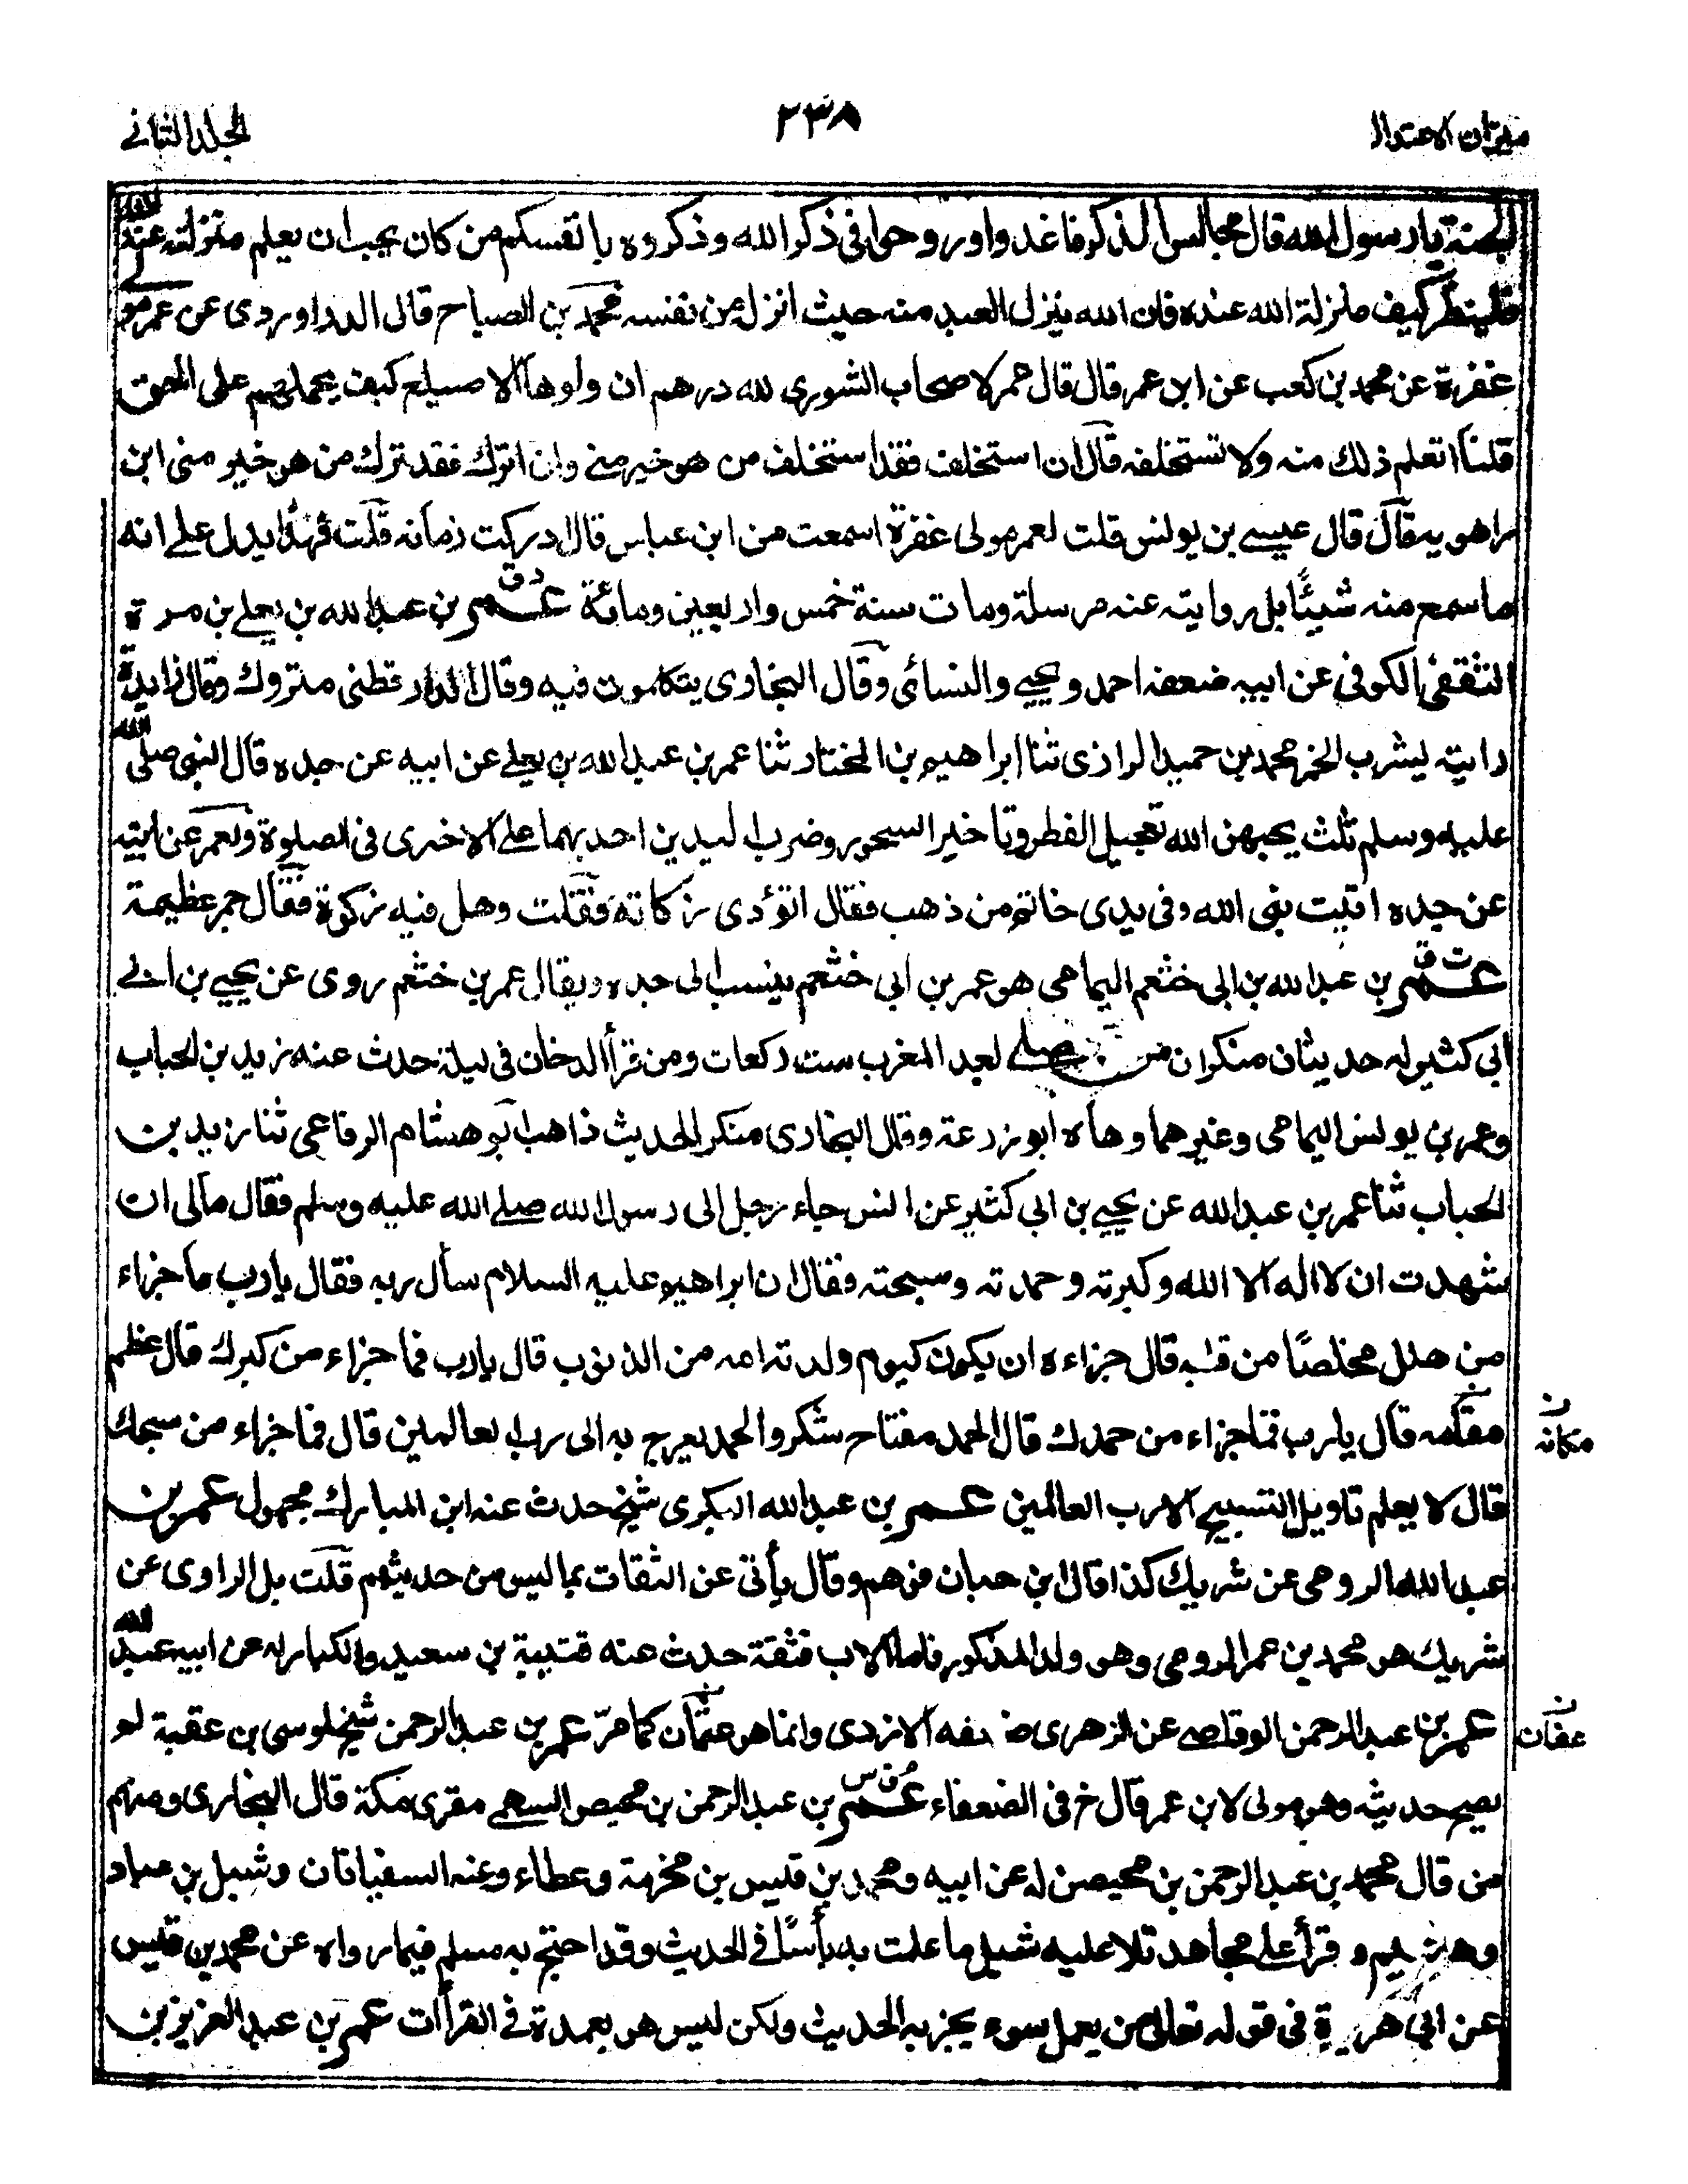 ميزان الاعتدال
٢٣٨
الجلد الثاني
الجنة يا رسول الله قال مجالس الذكر فاغدوا وروحوا في ذكر الله وذكروه بانفسكم من كان يحب ان يعلم منزلته عند الله
فلينظر كيف منزلة الله عنده فان الله ينزل العبد منه حيث انزله من نفسه محمد بن الصباح قال الدراوردي عن عمر مو
غفرة عن محمد بن كعب عن ابن عمر قال قال عمر لاصحاب الشورى لله درهم ان ولوها الاصيلع كيف يحملهم على الحق
قلنا اتعلم ذلك منه ولا تستخلفه قال ان استخلف فقد استخلف من هو خير مني وان اترك فقد ترك من هو خير مني ابن
راهويه قال قال عيسى بن يونس قلت لعمر مولى غفرة اسمعت من ابن عباس قال ادركت زمانه قلت فهذا يدل على انه
ما سمع منه شيئا بل روايته عنه مرسلة ومات سنة خمس واربعين ومائة عمر دق بن عبد الله بن يعلى بن مرة
الثقفي الكوفي عن ابيه ضعفه احمد ويحيى والنسائي وقال البخاري يتكلمون فيه وقال الدارقطني متروك وقال زايدة
رايته يشرب الخمر محمد بن حميد الرازي ثنا ابراهيم بن المختار ثنا عمر بن عبد الله بن يعلى عن ابيه عن جده قال النبي صلى الله
عليه وسلم ثلث يحبهن الله تعجيل الفطر وتاخير السحور وضرب اليدين احدبهما على الاخرى في الصلوة ولعمر عن ابيه
عن جده اتيت نبي الله وفي يدي خاتم من ذهب فقال اتؤدي زكاته فقلت وهل فيه زكوة فقال جمر عظيمة
عمر ت ق بن عبد الله بن ابي خثعم اليمامي هو عمر بن ابي خثعم ينسب الى جده ويقال عمر بن خثعم روى عن يحيى بن ابي
ابي كثير له حديثان منكران من صلى بعد المغرب ست ركعات ومن قرأ الدخان في ليلة حدث عنه زيد بن الحباب
وعمر بن يونس اليمامي وغيرهما وهاه ابو زرعة وقال البخاري منكر الحديث ذاهب ابو هشام الرفاعي ثنا زيد بن
الحباب ثنا عمر بن عبد الله عن يحيى بن ابي كثير عن انس جاء رجل الى رسول الله صلى الله عليه وسلم فقال مالي ان
شهدت ان لا اله الا الله وكبرته وحمدته وسبحته فقال ان ابراهيم عليه السلام سأل ربه فقال يا رب ما جزاء
من هلل مخلصًا من قلبه قال جزاءه ان يكون كيوم ولدته امه من الذنوب قال يا رب فما جزاء من كبرك قال عظم
مقامه قال يا رب فما جزاء من حمدك قال الحمد مفتاح شكر والحمد يعرج به الى رب العالمين قال فما جزاء من سبحك
مكانه
قال لا يعلم تاويل التسبيح الا رب العالمين عمر بن عبد الله البكري شيخ حدث عنه ابن المبارك مجهول عمر بن
عبد الله الرومي عن شريك كذا قال ابن حبان فوهم وقال يأتي عن الثقات بما ليس من حديثهم قلت بل الراوي عن
شريك هو محمد بن عمر الرومي وهو ولد المذكور فاما الاب فثقة حدث عنه قتيبة بن سعيد والكبار له عن ابيه عبد الله
عمر بن عبد الرحمن الوقاصي عن الزهري ضعفه الازدي وانما هو عثمان كما مر عمر بن عبد الرحمن شيخ لموسى بن عقبة لم
عفان
يصح حديثه وهو مولى لابن عمر قال خ في الضعفاء عمر م ت س بن عبد الرحمن بن محيصن السهمي مقرئ مكة قال البخاري ومنهم
من قال محمد بن عبد الرحمن بن محيصن له عن ابيه ومحمد بن قيس بن مخرمة وعطاء وعنه السفيانان وشبل بن عباد
وهشيم وقرأ على مجاهد تلا عليه شبل ما علمت به بأسًا في الحديث وقد احتج به مسلم فيما رواه عن محمد بن قيس
عن ابي هريرة في قوله تعالى من يعمل سوء يجز به الحديث ولكن ليس هو بعمدة في القرأات عمر بن عبد العزيز بن